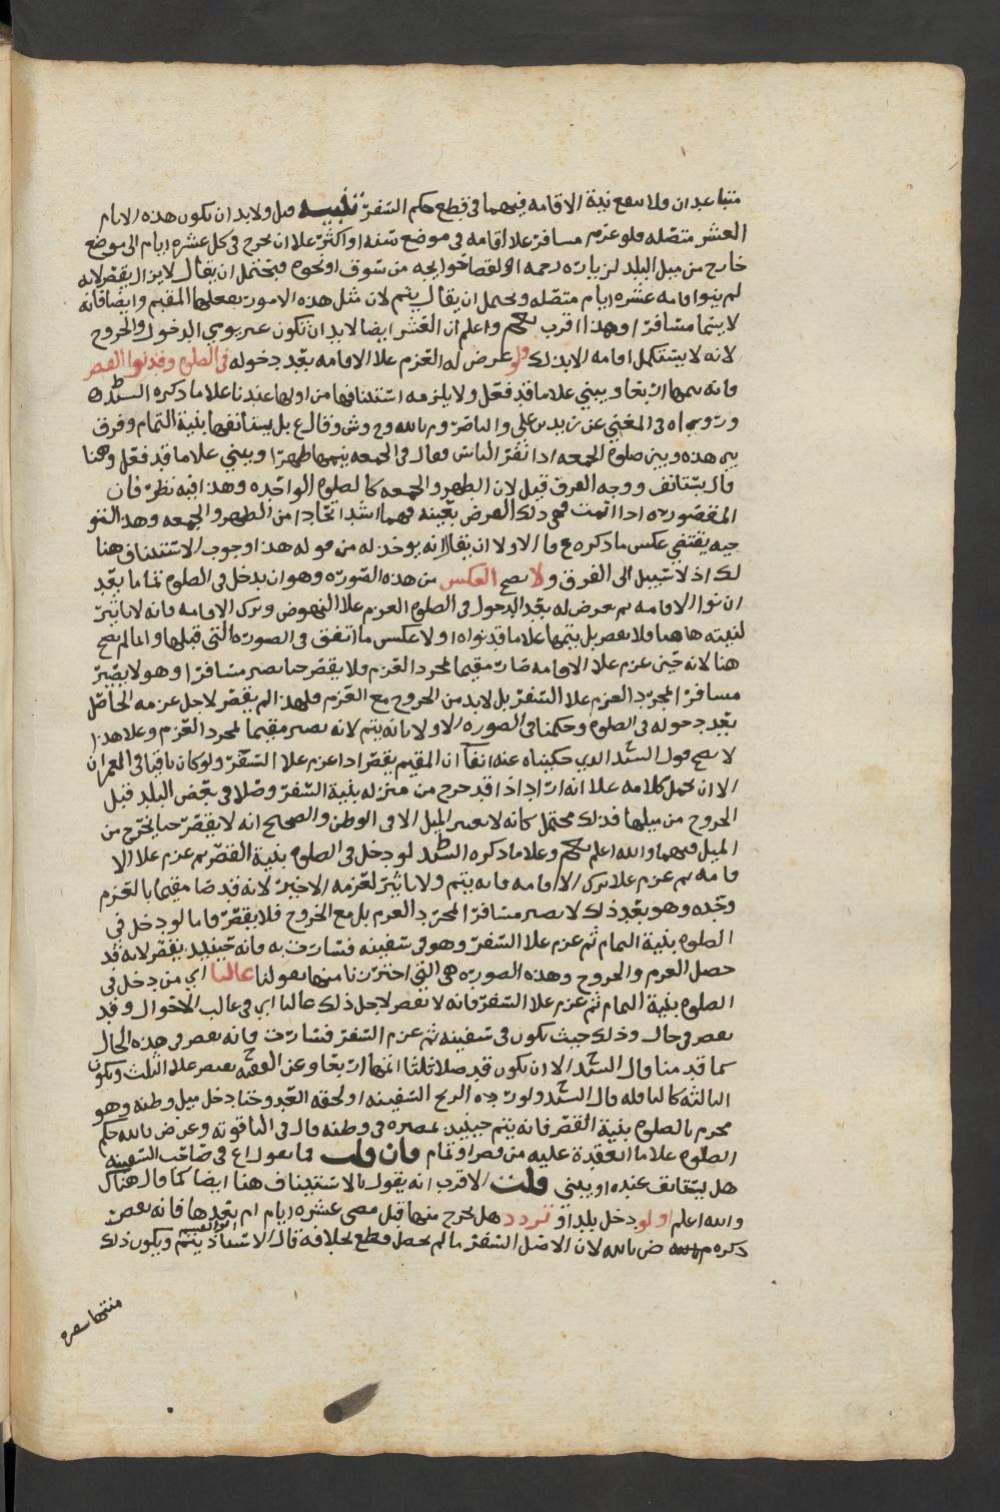 متباعدان ولا تنفع نية الاقامه فيهما في قطع حكم السفر تنبيه قيل ولا بد ان تكون هذه الايام
العشر متصله فلو عزم مسافر علا اقامه في موضع سنه او اكثر علا ان يخرج في كل عشره ايام الى موضع
خارج من ميل البلد لزيارة رحمه او لقضا حوايجه من سوق او نحوه فيحتمل ان يقال لا يزال يقصر لانه
لم ينوا اقامه عشره ايام متصله ويحتمل ان يقال يتم لان مثل هذه الامور يفعلها المقيم وايضا فانه
لا يسما مسافرا وهذا اقرب واعلم ان العشر ايضا لا بد ان تكون غير يومي الدخول والخروج
لانه لا يستكمل اقامه الا بذلك ولو عرض له العزم علا الاقامه بعد دخوله في الصلوه وقد نوا القصر
فانه يتمها اربعا ويبني علا ما قد فعل ولا يلزمه استئنافها من اولها عندنا علا ما ذكره السيد
ورواه في المغني عن زيد بن علي والناصر وم بالله وح وش وقال ع بل يستانفها بنية التمام وفرق
بين هذه وبين صلوة الجمعه اذا نفر الناس فقال في الجمعه يتمها ظهرا ويبني علا ما قد فعل وهنا
قال يستانف ووجه الفرق قيل لان الظهر والجمعه كالصلوه الواحده وهذا فيه نظر فان
المقصوره اذا اتمت فهي ذلك الفرض بعينه فهما اشد اتحادا من الظهر والجمعه وهذا التو
جيه يقتضي عكس ما ذكره ع فالاولا ان يقال انه يوخذ له من قوله هذا وجوب الاستئناف هنا
لك اذ لا سبيل الى الفرق ولا يصح العكس من هذه الصوره وهو ان يدخل في الصلوه تماما بعد
ان نوا الاقامه ثم يعرض له بعد الدخول في الصلوه العزم علا النهوض وترك الاقامه فانه لا تاثير
لنيته هاهنا فلا يقصر بل يتمها علا ما قد نواه اولا عكس ما اتفق في الصوره التي قبلها وانما لم يصح
هنا لانه حين عزم علا الاقامه صار مقيما لمجرد العزم ولا يقصر حتا يصير مسافرا وهو لا يصير
مسافرا لمجرد العزم علا السفر بل لا بد من الخروج مع العزم فلهذا لم يقصر لاجل عزمه الحاصل
بعد دخوله في الصلوه وحكمنا في الصوره الاولا بانه يتم لانه يصير مقيما لمجرد العزم وعلا هذا
لا يصح قول السيد الذي حكيناه عنه انفا ان المقيم يقصر اذا عزم علا السفر ولو كان باقيا في العمران
الا ان يحمل كلامه علا انه اراد اذا قد خرج من منزله بنية السفر وصلا في بعض البلد قبل
الخروج من ميلها فذلك محتمل كانه لا يعتبر الميل الا في الوطن والصحيح انه لا يقصر حتا يخرج من
الميل فيهما والله اعلم وعلا ما ذكره السيد لو دخل في الصلوه بنية القصر ثم عزم علا الا
قامه ثم عزم علا ترك الاقامه فانه يتم ولا تاثير لعزمه الاخير لانه قد صار مقيما بالعزم
وحده وهو بعد ذلك لا يصير مسافرا لمجرد العزم بل مع الخروج فلا يقصر فاما لو دخل في
الصلوه بنية التمام ثم عزم علا السفر وهو في سفينه فسارت به فانه حينيذ يقصر لانه قد
حصل العزم والخروج وهذه الصوره هي التي احترزنا منها بقولنا غالبا اي من دخل في
الصلوه بنية التمام ثم عزم علا السفر فانه لا يقصر لاجل ذلك غالبا اي في غالب الاحوال وقد
يقصر في حال وذلك حيث يكون في سفينه ثم عزم السفر فسارت فانه يقصر في هذه الحال
كما قدمنا قال السيد الا ان يكون قد صلا ثلثا اتمها اربعا وعن الفقيه يقتصر علا الثلث وتكون
الثالثه كالنافله قال السيد ولو رده الريح السفينه او لحقه العدو حتا دخل ميل وطنه وهو
محرم بالصلوه بنية القصر فانه يتم حينيذ لمصيره في وطنه قال في الياقوته وعن ض بالله حكم
الصلوه علا ما انعقدة عليه من قصر او تمام فان قلت فما يقول ع في صاحب السفينه
هل يستانف عنده او يبني قلت الاقرب انه يقول بالاستيناف هنا ايضا كما قال هناك
والله اعلم او لو دخل بلدا وتردد هل يخرج منها قبل مضي عشره ايام ام بعدها فانه يقصر
ذكره ض بالله لان الاصل السفر ما لم يحصل قطع بخلافه قال الاستاذ يتم ويكون ذلك
منتها سفره